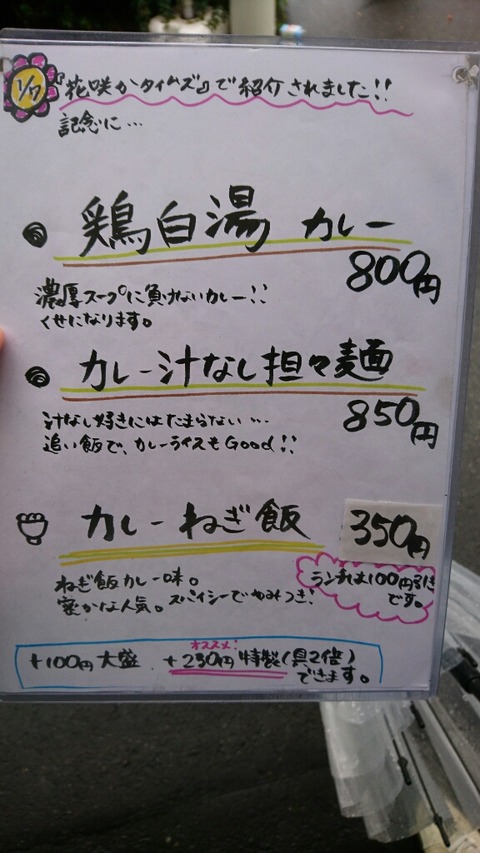 1/7
『花咲かタイムズ』で紹介されました!!
記念に…
鶏白湯 カレー
800円
濃厚スープに負けないカレー!!
くせになります。
カレー汁なし担々麺
850円
汁なし好きにはたまらない…
追い飯で、カレーライスもGood!!
カレーねぎ飯
350円
ランチは100円引き
です。
ねぎ飯カレー味。
密かな人気。スパイシーでやみつき!
オススメ!
+100円大盛 +230円特製(具2倍)
できます。